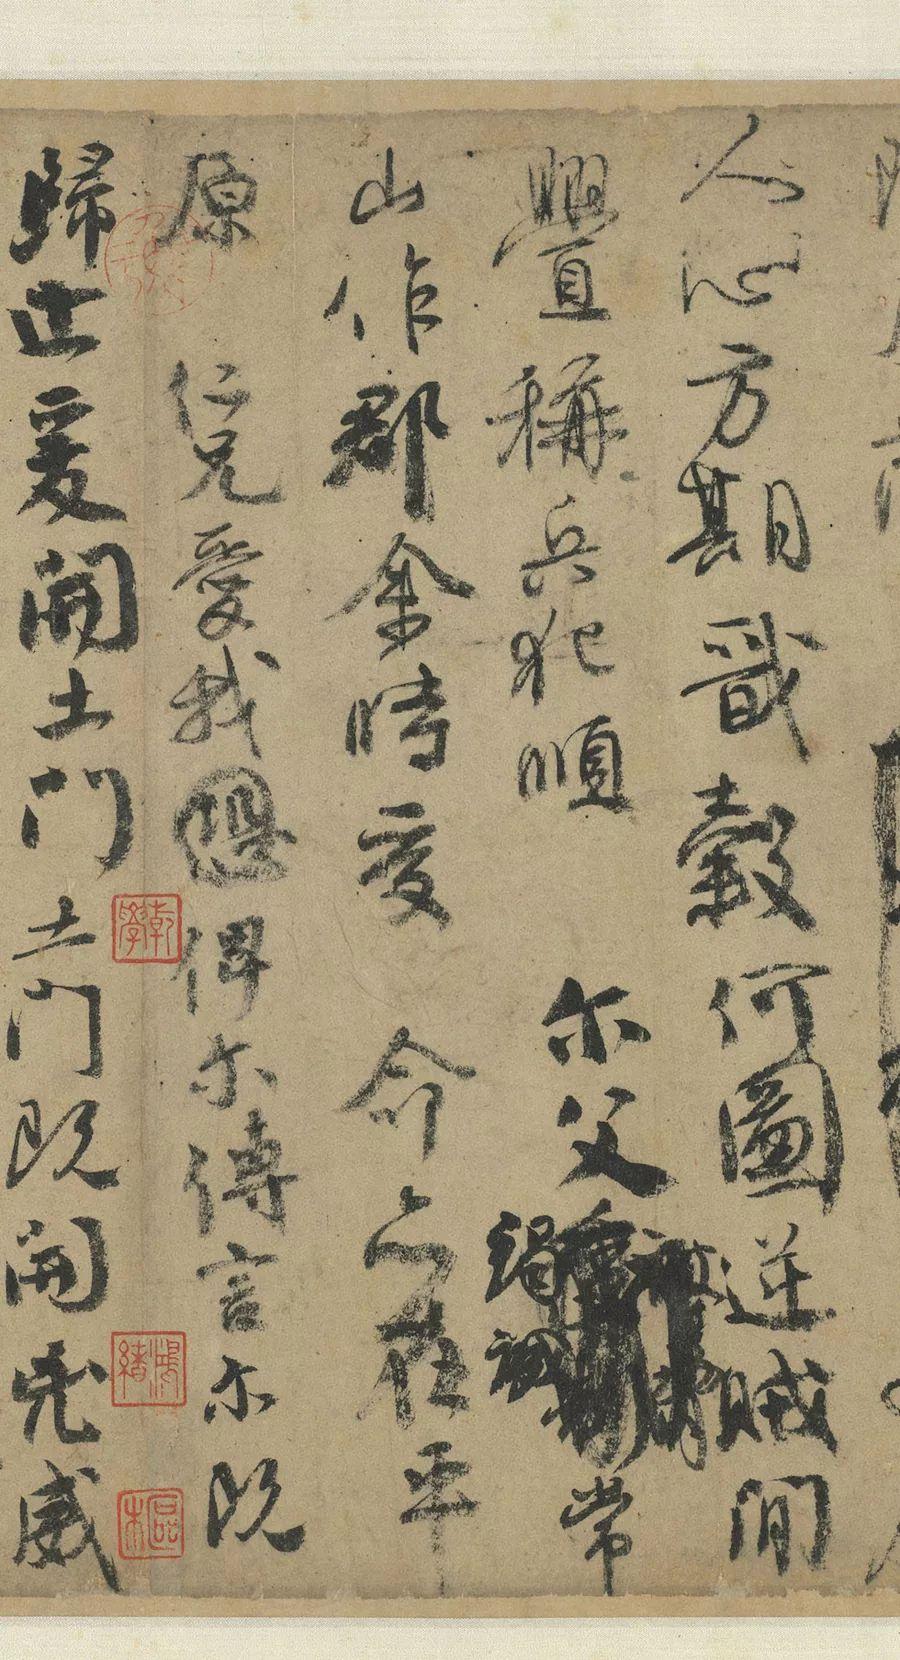 人心方期戩穀何圖逆賊閒
釁稱兵犯順 尒父竭誠常
山作郡余時受 命亦在平
原 仁兄愛我恐俾尒傳言尒既
歸止爰開土門土門既開凶威
乾學